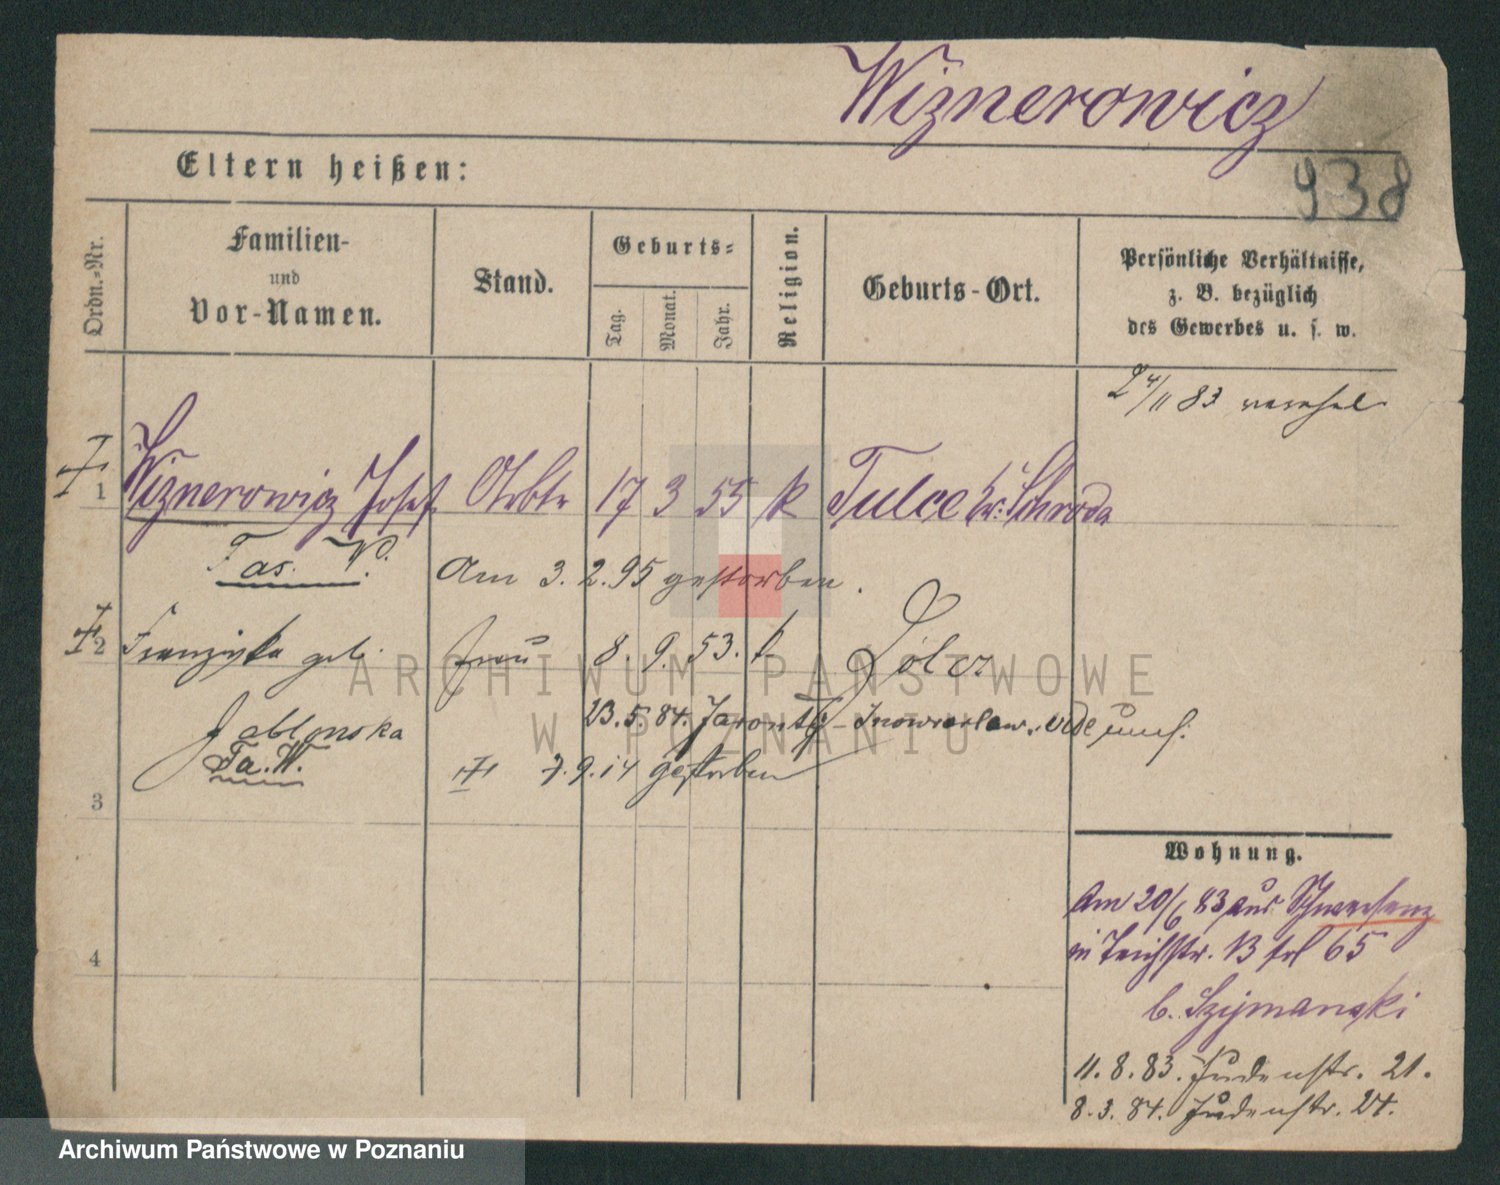 Wiznerowicz
938
Eltern heißen:
Ordn.-Nr.
Familien-
und
Vor-Namen.
Stand.
Geburts-
Tag.
Monat.
Jahr.
Religion.
Geburts-Ort.
Persönliche Verhältnisse,
z. B. bezüglich
des Gewerbes u. s. w.
24/11 83
1 Wiznerowicz Josef Arbtr 17 3 55 k Tulce Kr. Schroda
Fas. W.
Am 3. 2. 95 gestorben.
2 Franziska geb. Frau 8. 9. 53. k
Jablonska
23. 5. 84. Inowrazlaw
Fa. W.
7. 9. 14 gestorben
3
4
Wohnung.
Am 20/6 83 aus Schwersenz
in Teichstr. 65
b. Szymanski
11. 8. 83. Judenstr. 21.
8. 3. 84. Judenstr. 24.
ARCHIWUM PAŃSTWOWE
W POZNANIU
Archiwum Państwowe w Poznaniu